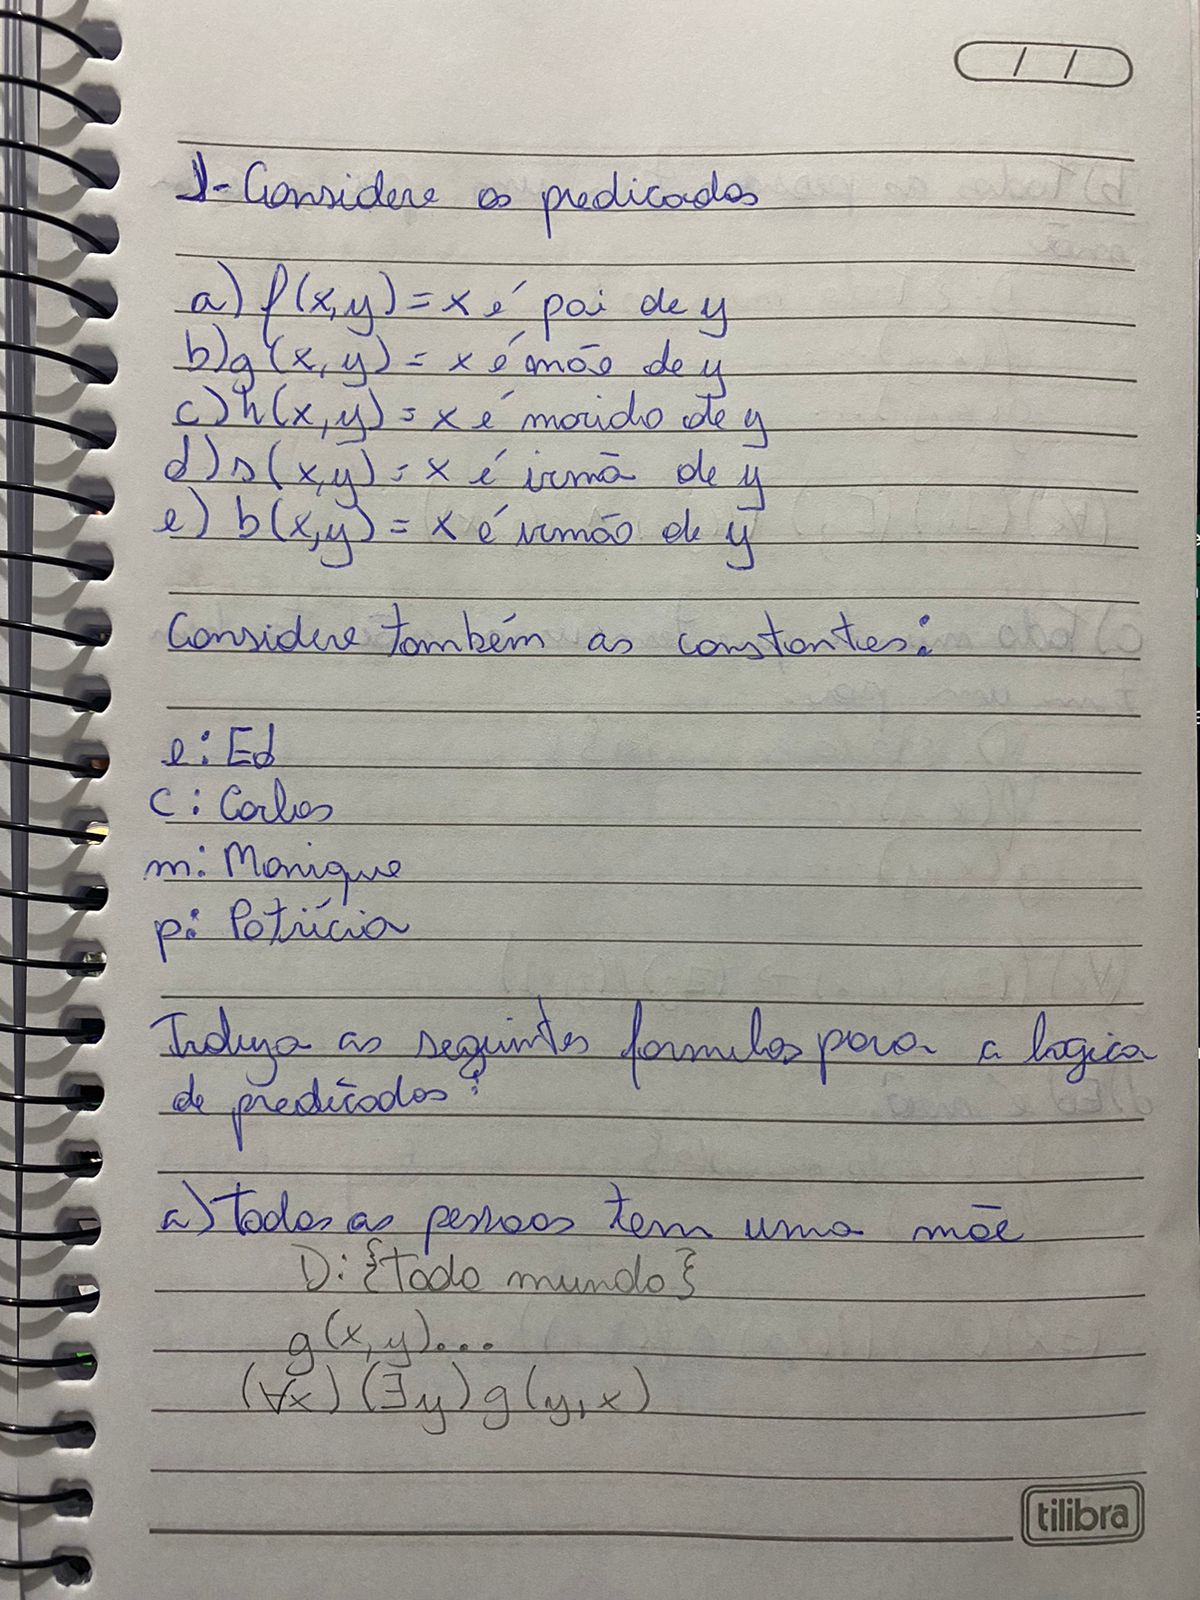 1- Considere os predicados
a) f(x,y) = x é pai de y
b) g(x,y) = x é mãe de y
c) h(x,y) = x é marido de y
d) s(x,y) = x é irmã de y
e) b(x,y) = x é irmão de y
Considere também as constantes:
e: Ed
c: Carlos
m: Monique
p: Patrícia
Traduza as seguintes formulas para a logica
de predicados:
a) Todas as pessoas tem uma mãe
D: {Todo mundo}
g(x,y)...
(∀x) (∃y) g(y,x)
tilibra